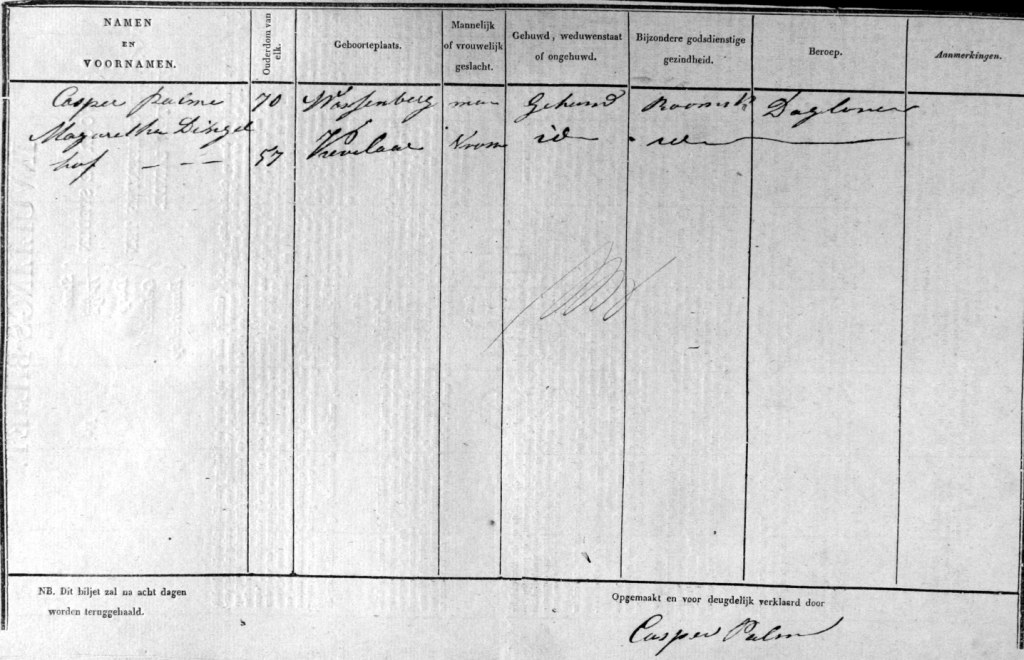 NAMEN
EN
VOORNAMEN.
Ouderdom van
elk.
Geboorteplaats.
Mannelijk
of vrouwelijk
geslacht.
Gehuwd, weduwenstaat
of ongehuwd.
Bijzondere godsdienstige
gezindheid.
Beroep.
Aanmerkingen.
Casper Palme 70 Wassenberg man Gehuwd Roomsk Dagloner
Magaretha Dingel
hof — — — 57 Kevelaar Vrouw id id
NB. Dit biljet zal na acht dagen
worden teruggehaald.
Opgemaakt en voor deugdelijk verklaard door
Casper Palm